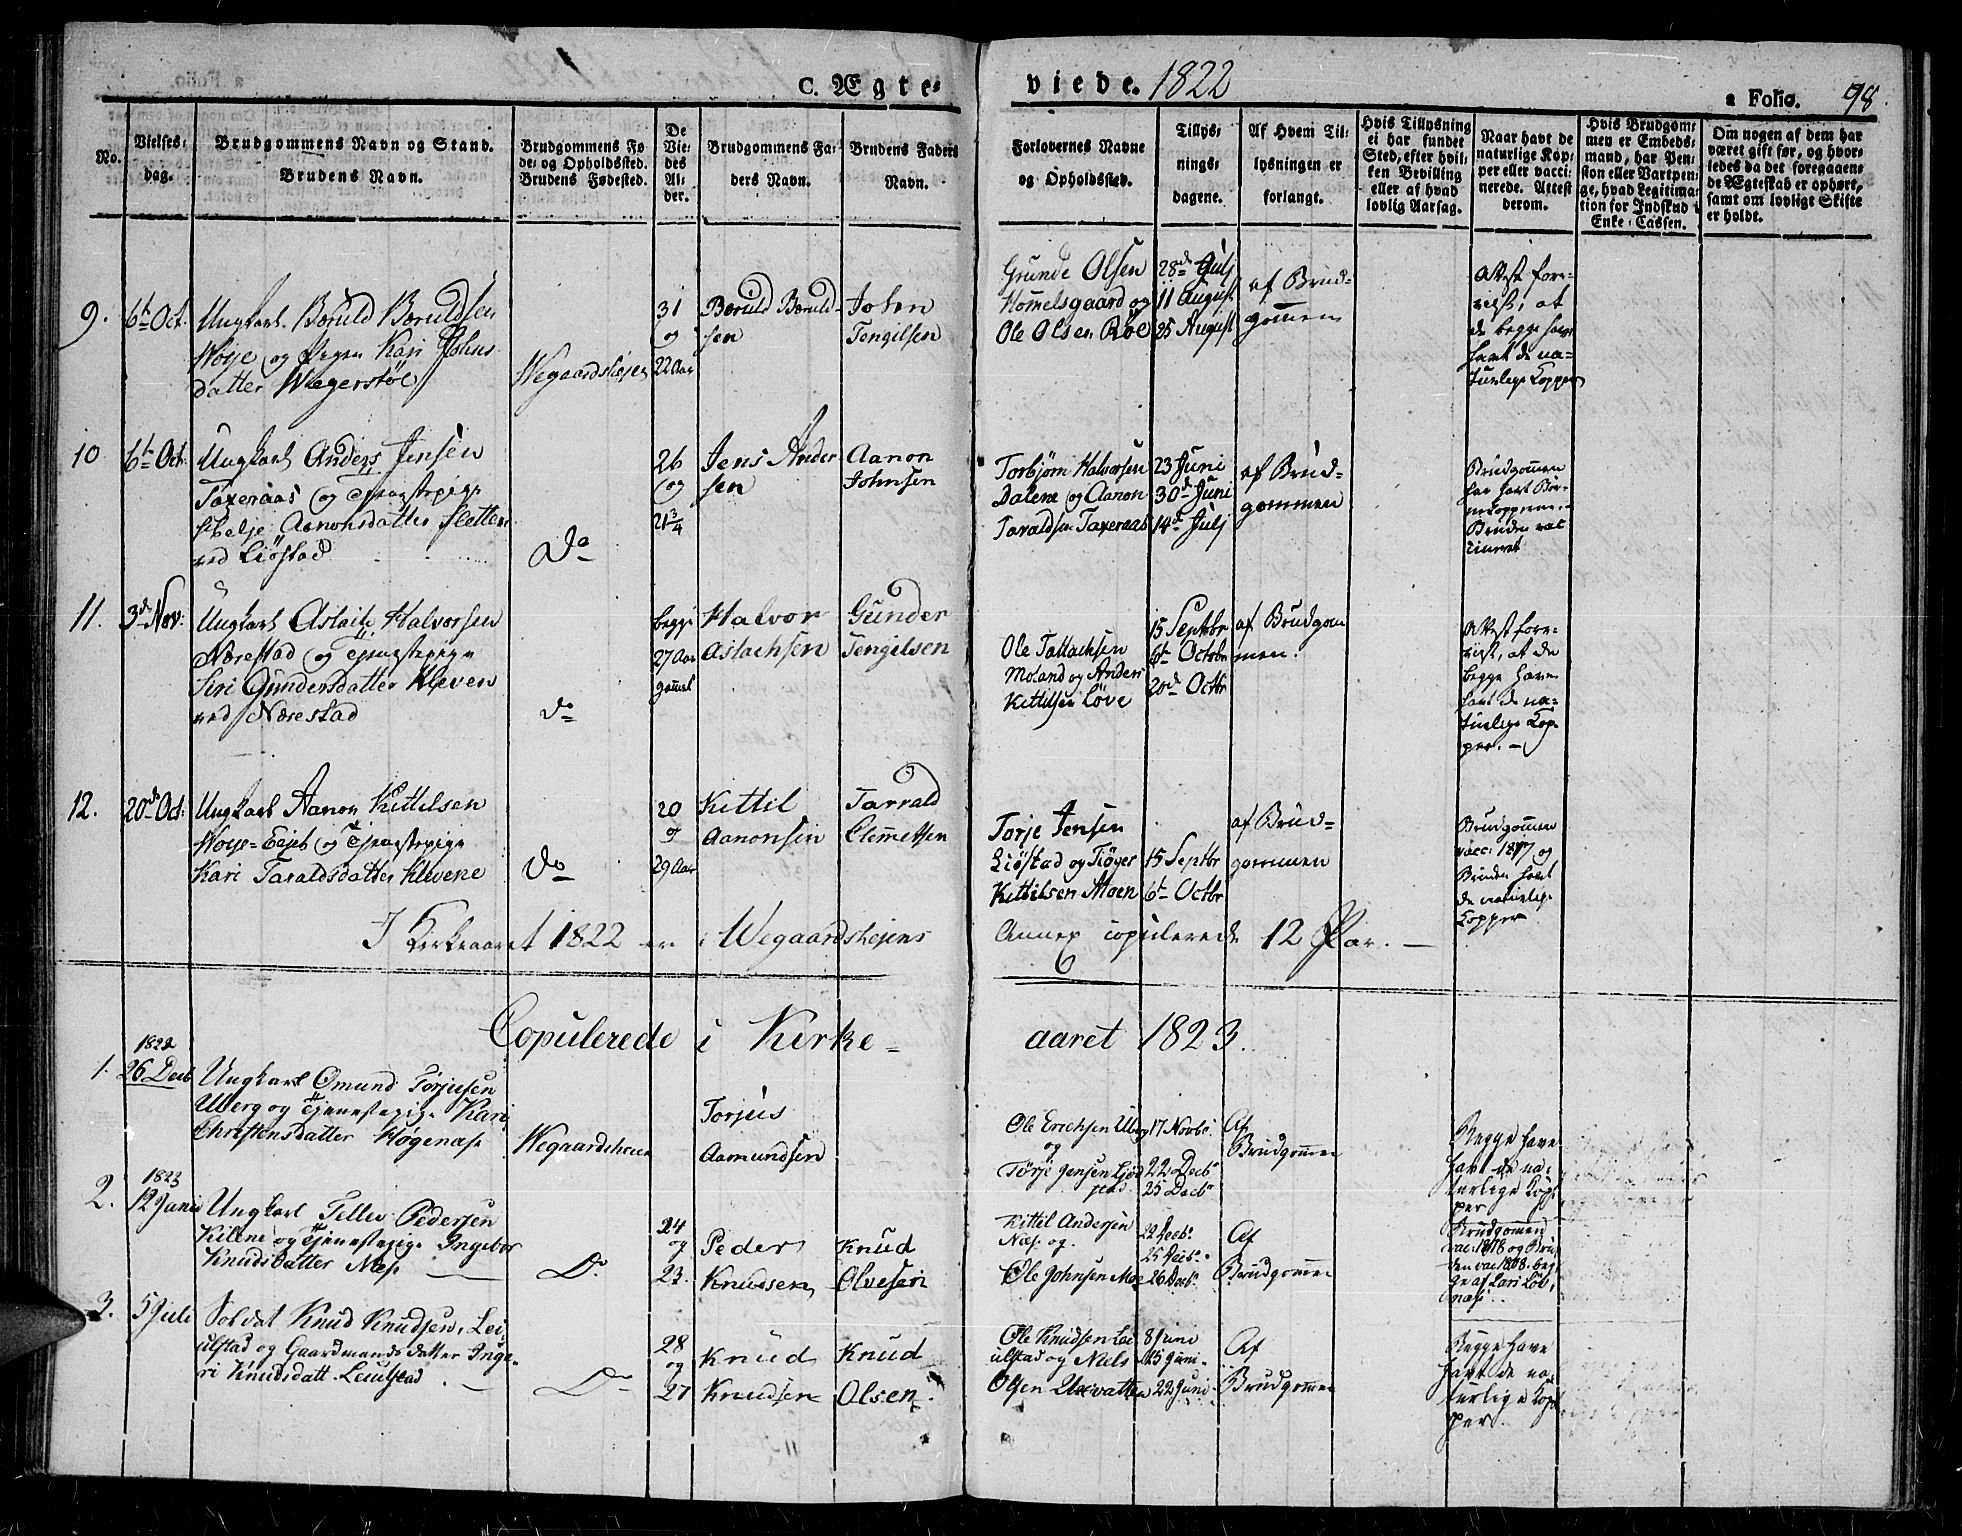 C. Ægte-
viede. 1822
a Folio. 98.
No.
Vielses-
dag.
Brudgommens Navn og Stand.
Brudens Navn.
Brudgommens Fø-
de- og Opholdssted.
Brudens Fødested.
De
Vie-
des
Al-
der.
Brudgommens Fa-
ders Navn.
Brudens Faders
Navn.
Forlovernes Navne
og Opholdssted.
Tillys-
nings-
dagene.
Af Hvem Til-
lysningen er
forlangt.
Hvis Tillysning
ei har fundet
Sted, efter hvil-
ken Bevilling
eller af hvad
lovlig Aarsag.
Naar havt de
naturlige Kop-
per eller vacci-
nerede. Attest
derom.
Hvis Brudgom-
men er Embeds-
mand, har Pen-
sion eller Vartpen-
ge, hvad Legitima-
tion for Indskud i
Enke-Cassen.
Om nogen af dem har
været gift før, og hvor-
ledes da det foregaaen-
de Ægteskab er ophørt,
samt om lovligt Skifte
er holdt.
9.
6te Oct.
Ungkarl Bæruld Bæruldsen
Woje og Pigen Kari Johns
datter Wegerstøl
Wegaardshejen
31
og
22 Aar
Bæruld Bæruld-
sen
John
Tengelsen
Grunde Olsen
Hommelsgaard og
Ole Olsen Røe
28de Julj
11 August
25 August
af Brud-
gommen
Attest fore-
vist, at
de begge have
havt de na-
turlige Kopper
10
6te Oct.
Ungkarl Anders Jensen
Taxeraas og Tjenestepige
Helje Aanonsdatter Sletten
ved Liøstad
Do
26
og
21 3/4
Jens Ander
sen
Aanon
Johnsen
Torbjørn Halvorsen
Dalene og Aanon
Taraldsen Taxeraas
23 Juni
30de Juni
14de Julj
af Brud-
gommen
Brudgommen
har havt Bør-
nekopperne.-
Bruden vac
cineret
11.
3de Nov:
Ungkarl Aslak Halvorsen
Nærestad og Tjenestepige
Siri Gundersdatter Kleven
ved Nærestad
do
begge
27 Aar
gammel
Halvor
Aslachsen
Gunder
Tengelsen
Ole Tallachsen
Moland og Anders
Kittilsen Løve
15 Septbr
6te Octbr
20de Octbr
af Brudgom
men.
Attest fore-
vist, at de
begge have
havt de na-
turlige Kop-
per. -
12.
20de Oct:
Ungkarl Aanon Kittilsen
Woje-Ejet og Tjenestepige
Kari Taraldsdatter Klevene
Do
20
og
29 Aar
Kittil
Aanonsen
Tarrald
Clemetsen
Torje Jensen
Liøstad og Tiøger
Kittilsen Moen
15 Septbr
6te Octbr
af Brud-
gommen
Brudgommen
vacc: 1817 og
Bruden havt
de naturlige
Kopper
I Kirkeaaret 1822 er i Wegaardshejens Annex copulerede 12 Par. -
Copulerede i Kirke-aaret 1823.
1.
1822
26 Decb
Ungkarl Omund Torjusen
Uberg og Tjenestepige Kari
Christensdatter Høgenæs
Wegaardsheien
Torjus
Aamundsen
Ole Erichsen Uberg
og
Torje Jensen Liøs
stad
17 Novbr.
22 Decbr
25 Decbr
Af
Brudgommen
Begge have
havt de na-
turlige Kop-
per
2.
1823
12 Juni
Ungkarl Tellev Pedersen
Kilene og Tjenestepige Ingebor
Knudsdatter Næs
Do
24
og
23.
Peder
Knudsen
Knud
Olvesen
Kittil Andersen
Næs og
Ole Johnsen Moe
22 Decbr
25 Decbr
26 Decbr
Af
Brudgommen
Brudgommen
vac: 1818 og Bru
den vac 1808. beg
ge af Lars Løv-
næs.
3.
5 Juli
Soldat Knud Knudsen, Lei-
ulstad og Gaardmands datter Inge-
ri Knudsdatt. Leiulstad
Do
28
og
27
Knud
Knudsen
Knud
Olsen
Ole Knudsen Lei
ulstad og Niels
Olsen Uxevatten
8 Juni
15 Juni
22 Juni
Af
Brudgommen
Begge have
havt de na-
turlige Kop-
per.